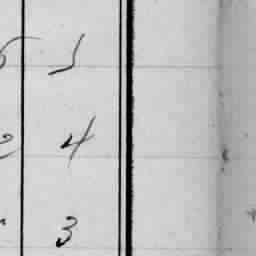 5 1
2 4
3